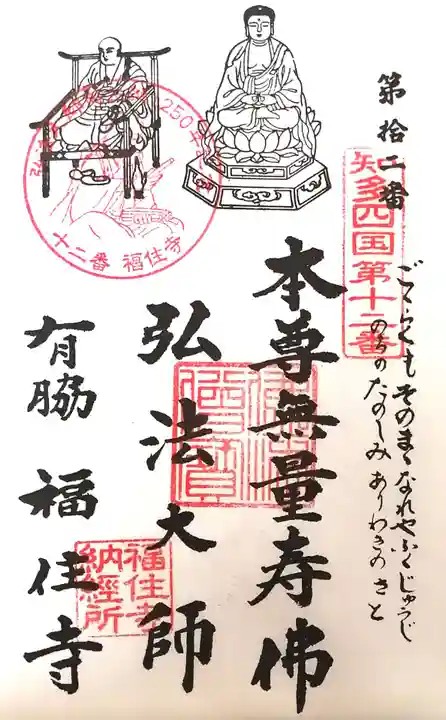 第拾二番
知多四国第十二番
ごくらくも そのまゝなれや ふくじゅうじ
のちのたのしみ ありわきのさと
本尊無量寿佛
弘法大師
有脇 福住寺
250年
十二番 福住寺
福住寺
納経所